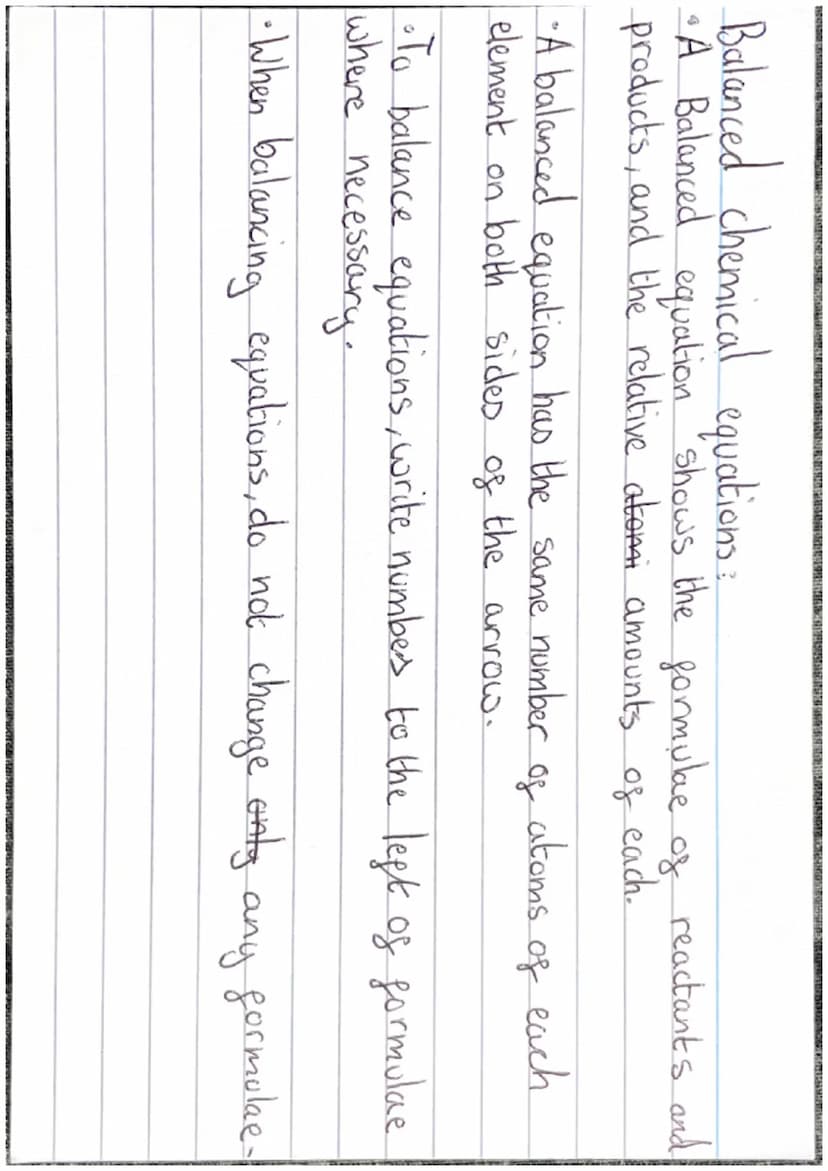 Balanced chemical equations:
• A Balanced equation shows the formulae of reactants and
products, and the relative ~~atomi~~ amounts of each.
• A balanced equation has the same number of atoms of each
element on both sides of the arrow.
• To balance equations, write numbers to the left of formulae
where necessary.
• When balancing equations, do not change ~~only~~ any formulae.